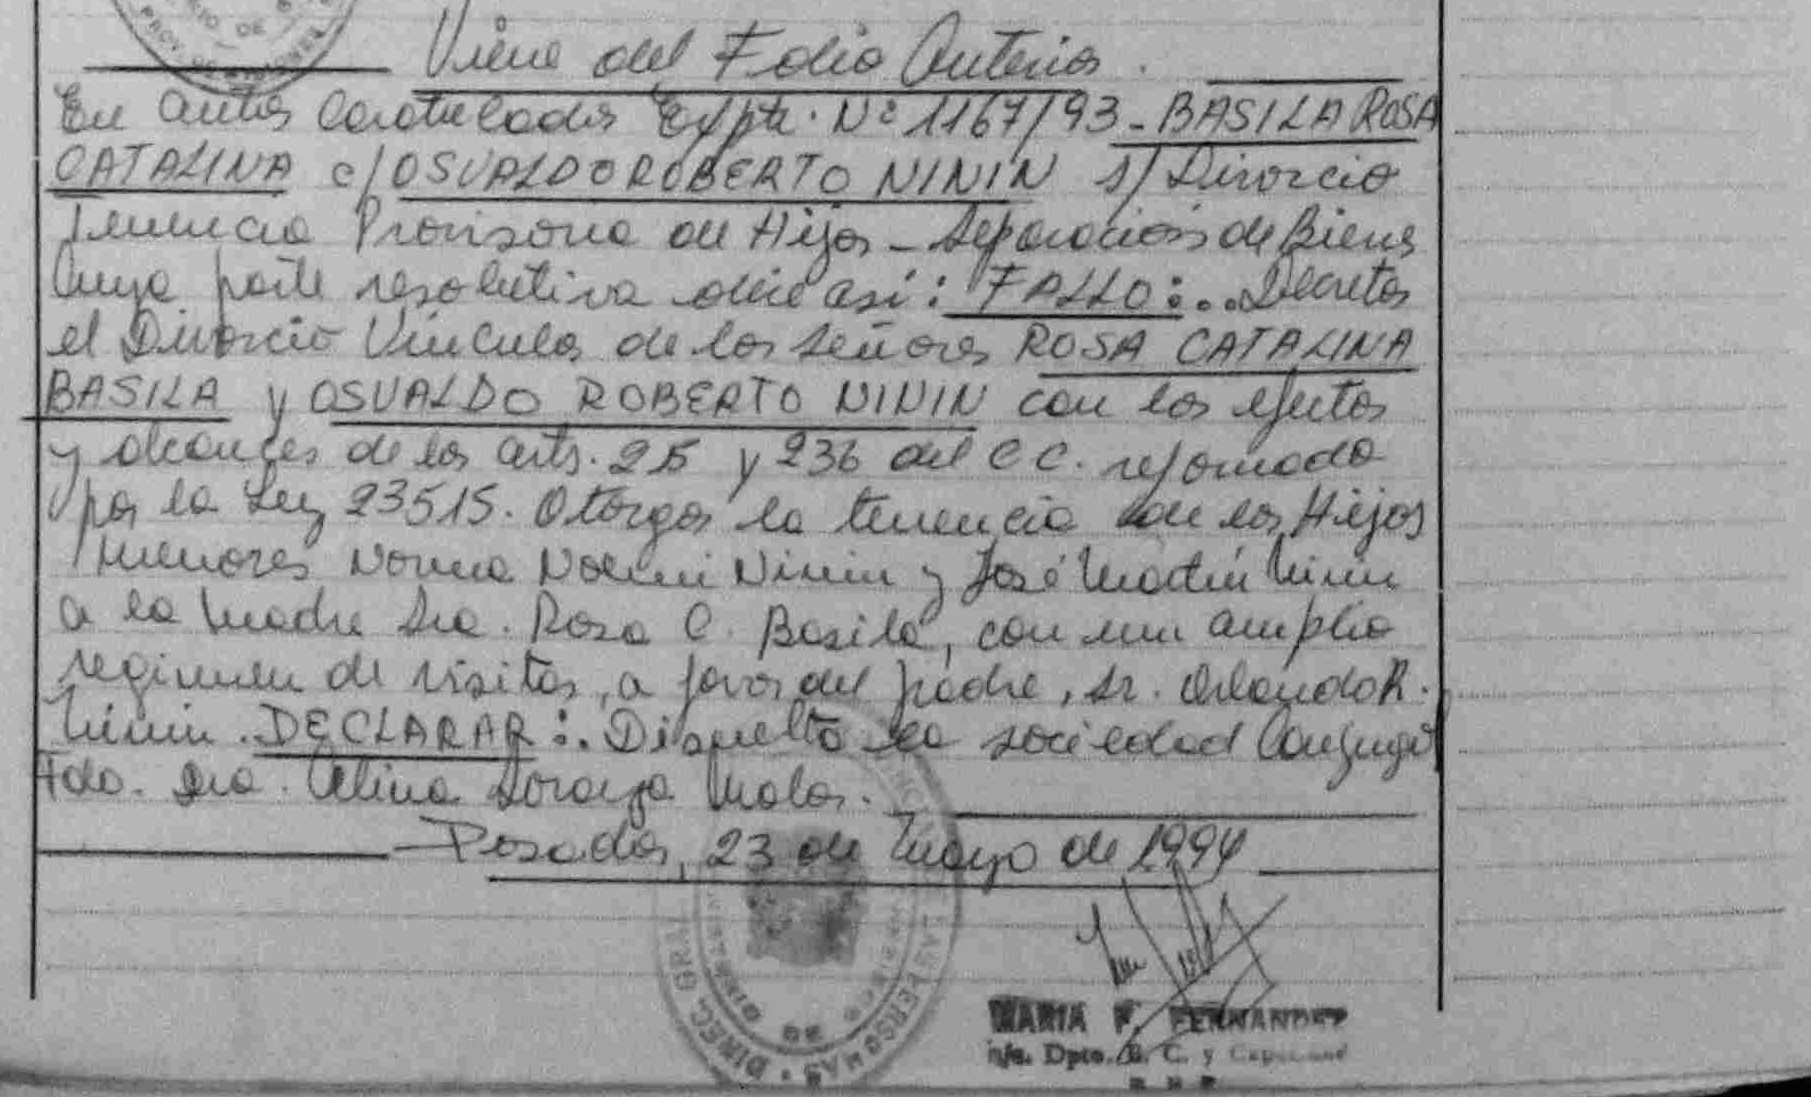 PROV. DE MISIONES
Viene del Folio Anterior.
En autos Caratulados Expte. Nº 1167/93 - BASILA ROSA
CATALINA c/ OSVALDO ROBERTO NININ s/ Divorcio
Tenencia Provisoria de Hijos - Separación de Bienes
Cuya parte resolutiva dice así: FALLO:... Decretar
el Divorcio Vincular de los Señores ROSA CATALINA
BASILA y OSVALDO ROBERTO NININ con los efectos
y alcances de los arts. 215 y 236 del C C. reformado
por la Ley 23515. Otorgar la tenencia de los Hijos
Menores Norma Noemi Ninin y José Martín Ninin
a la Madre Sra. Rosa C. Basila, con un amplio
regimen de visitas, a favor del padre, Sr. Orlando R.
Ninin. DECLARAR:. Disuelto la sociedad Conyugal
Fdo. Dra. Alina
Posadas, 23 de Mayo de 1994
DIREC. GRAL. PERSONAS
MARIA F. FERNANDEZ
Dpto. C. y